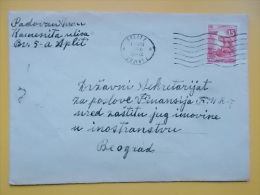 Padovan Ivon
Kamenita ulica
Br. 5-a Split
15
Državni Sekretarijat
za poslove Finansija F.N.R.J.
ured zaštitu jug imovine
u inostranstvu
Beograd